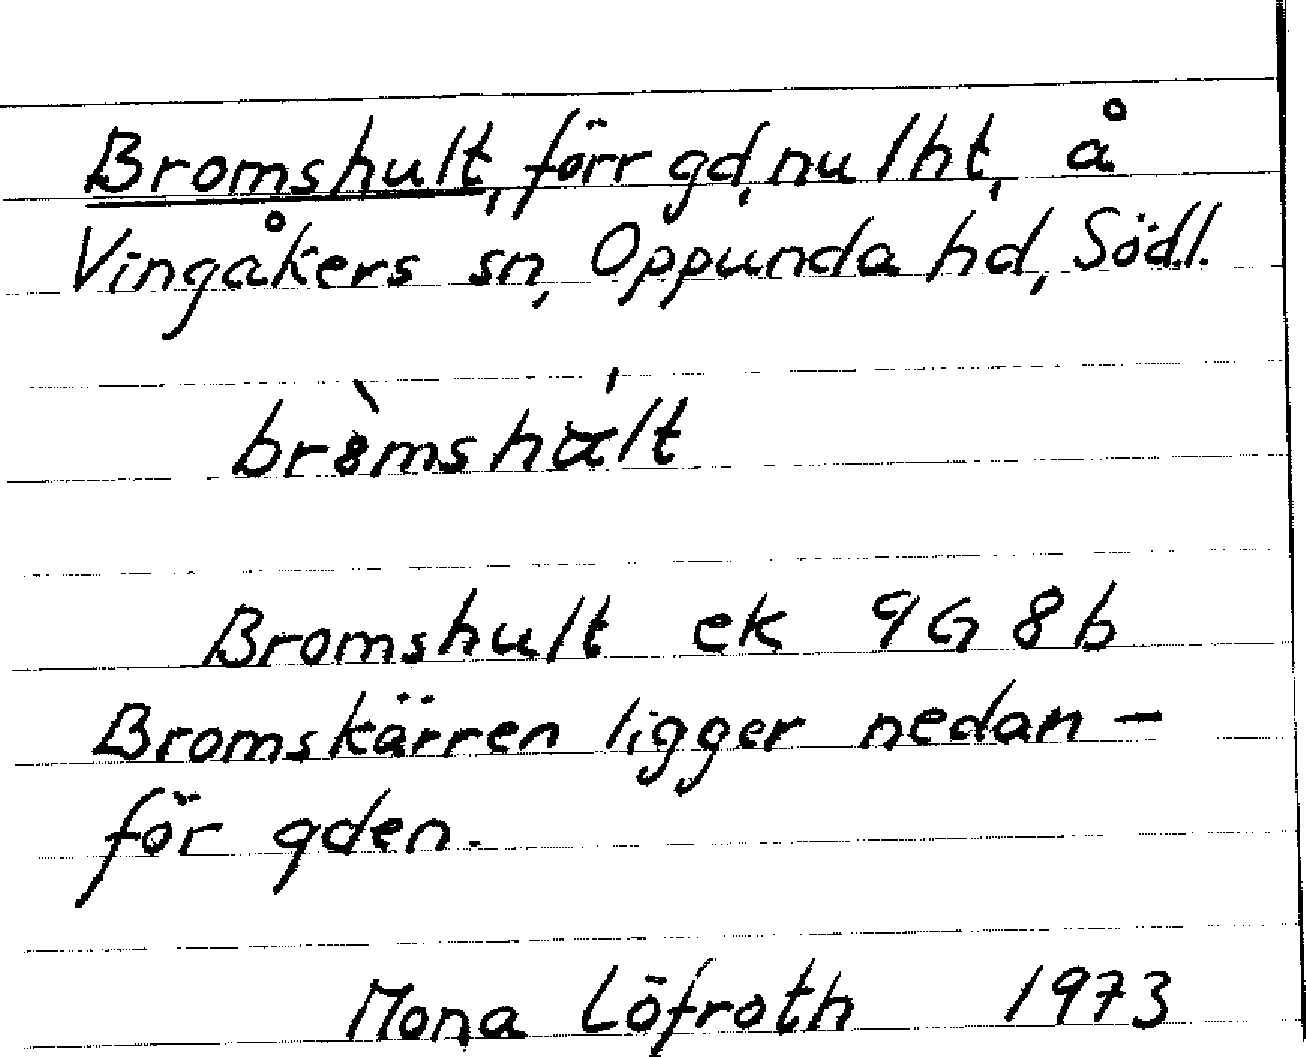 Bromshult, förr gd, nu lht, å
Vingåkers sn, Oppunda hd, Södl.
Bromshult ek 9G 8b
Bromskärren ligger nedan-
för gden.
Mona Löfroth 1973